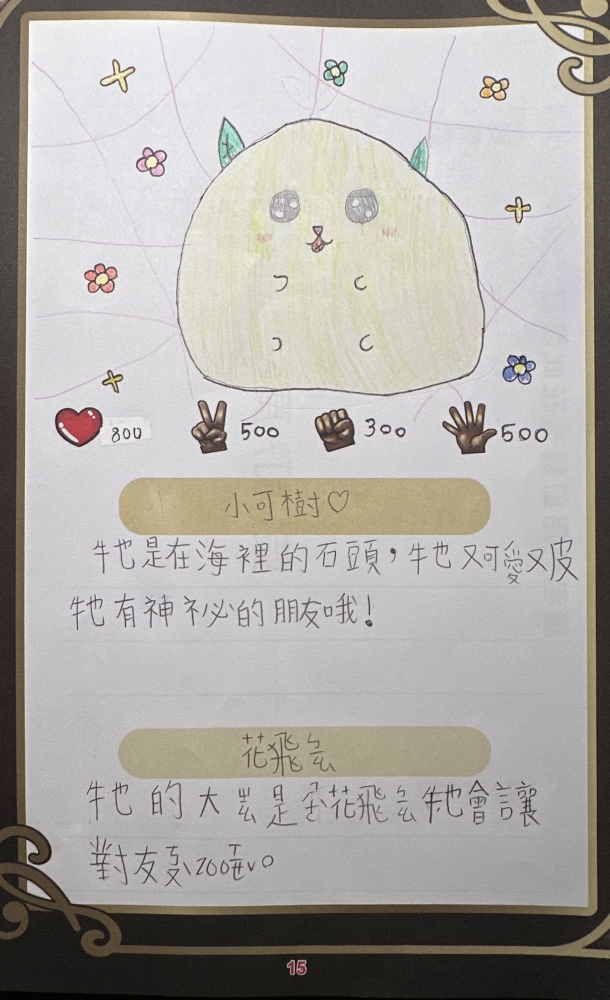 800 500 300 500
小可樹♡
牠是在海裡的石頭，牠又可愛又皮
牠有神祕的朋友哦！
花飛
牠的大是花飛牠會讓
對友200
15